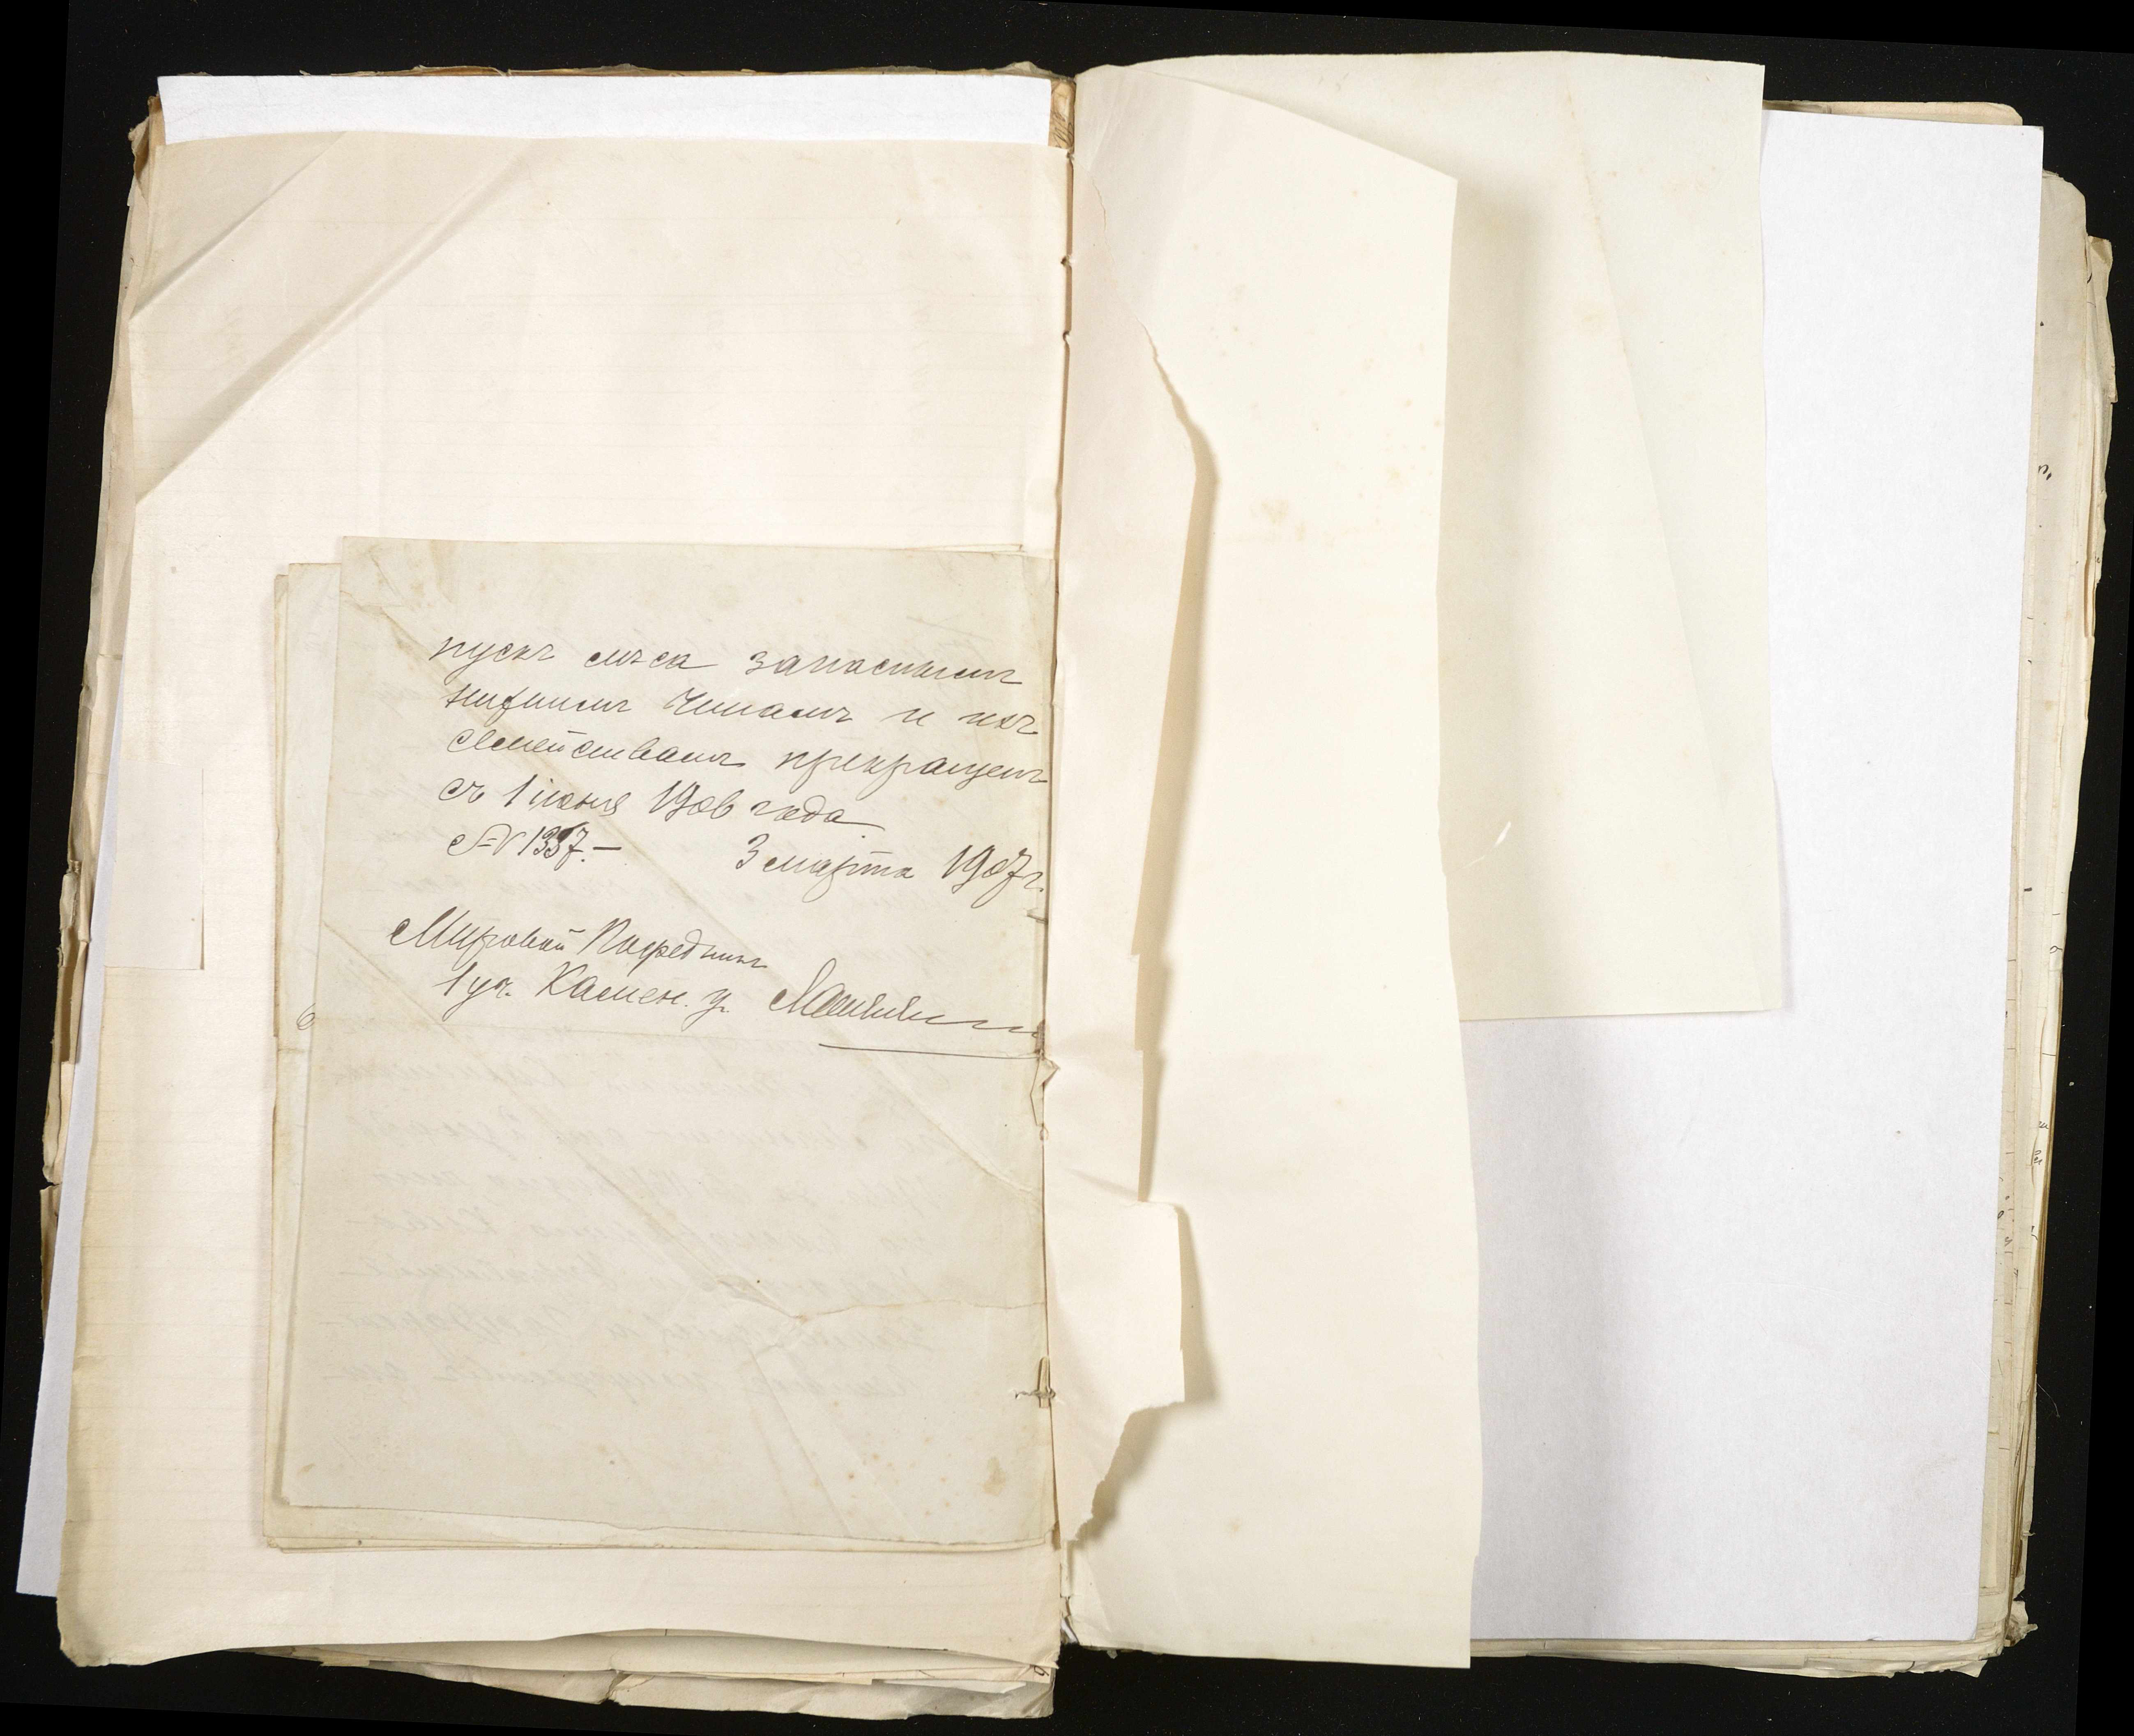 пускъ лѣса запаснымъ
нижнимъ чинамъ и ихъ
семействамъ прекращенъ
съ 1 іюня 1906 года
№ 1387.–  3 марта 1907 г.
Мировой Посредникъ
1 уч. Камен. у.